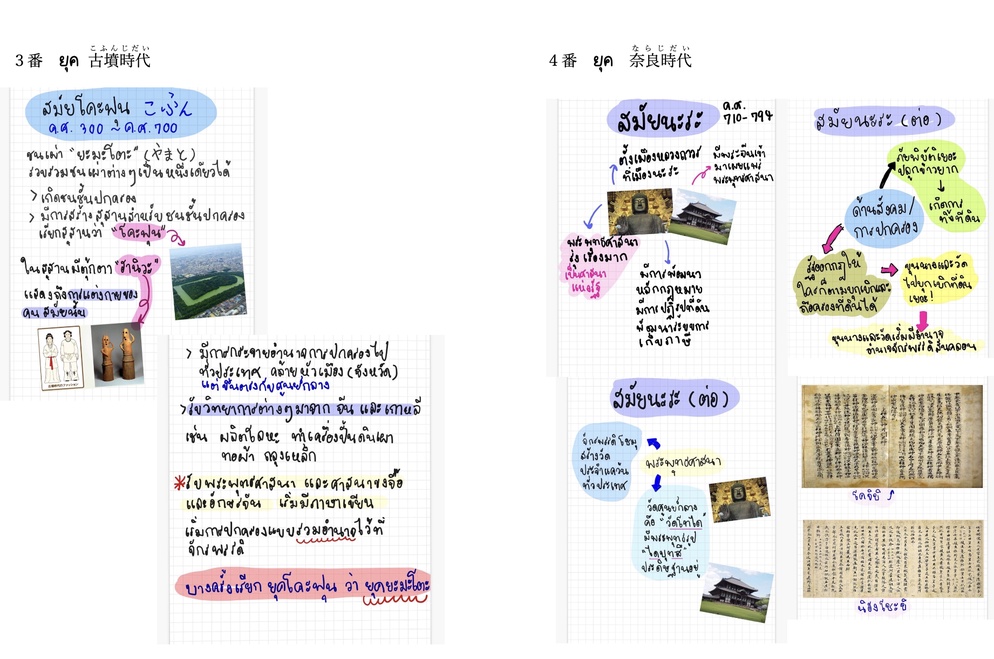 こふんじだい
3番 ยุค 古墳時代
สมัยโคะฟุน こふん
ค.ศ. 300 ~ ค.ศ. 700
ชนเผ่า "ยะมะโตะ" (やまと)
รวบรวมชนเผ่าต่างๆเป็นหนึ่งเดียวได้
> เกิดชนชั้นปกครอง
> มีการสร้างสุสานสำหรับชนชั้นปกครอง
เรียกสุสานว่า "โคะฟุน"
ในสุสานมีตุ๊กตา "ฮานิวะ"
แสดงถึงการแต่งกายของ
คนสมัยนั้น
> มีการกระจายอำนาจการปกครองไป
ทั่วประเทศ, คล้ายหัวเมือง (จังหวัด)
แต่ขึ้นตรงกับศูนย์กลาง
> รับวิทยาการต่างๆมาจาก จีน และเกาหลี
เช่น ผลิตโลหะ ทำเครื่องปั้นดินเผา
ทอผ้า ถลุงเหล็ก
*รับพระพุทธศาสนา และศาสนาขงจื้อ
และอักษรจีน เริ่มมีภาษาเขียน
เริ่มการปกครองแบบรวมอำนาจไว้ที่
จักรพรรดิ
บางครั้งเรียก ยุคโคะฟุน ว่า ยุคยะมะโตะ
ならじだい
4番 ยุค 奈良時代
สมัยนะระ
ค.ศ.
710-794
ตั้งเมืองหลวงถาวร
ที่เมืองนะระ
มีพระจีนเข้า
มาเผยแพร่
พระพุทธศาสนา
พระพุทธศาสนา
รุ่งเรืองมาก
เป็นศาสนา
แห่งรัฐ
มีการพัฒนา
หลักกฎหมาย
มีการปฏิรูปที่ดิน
พัฒนาระบบการ
เก็บภาษี
สมัยนะระ (ต่อ)
ภัยพิบัติเยอะ
ปลูกข้าวยาก
เกิดการ
ทิ้งที่ดิน
ด้านสังคม/
การปกครอง
รัฐออกกฎให้
ใครก็ตามบุกเบิกและ
ถือครองที่ดินได้
ขุนนางและวัด
ไปบุกเบิกที่ดิน
เยอะ!
ขุนนางและวัดเริ่มมีอำนาจ
อำนาจจักรพรรดิสั่นคลอน
สมัยนะระ (ต่อ)
จักรพรรดิโชมุ
สร้างวัด
ประจำแคว้น
ทั่วประเทศ
พระพุทธศาสนา
วัดศูนย์กลาง
คือ "วัดโทไดจิ"
มีพระพุทธรูป
"ไดบุทสึ"
ประดิษฐานอยู่
โคจิขิ
นิฮงโชะขิ